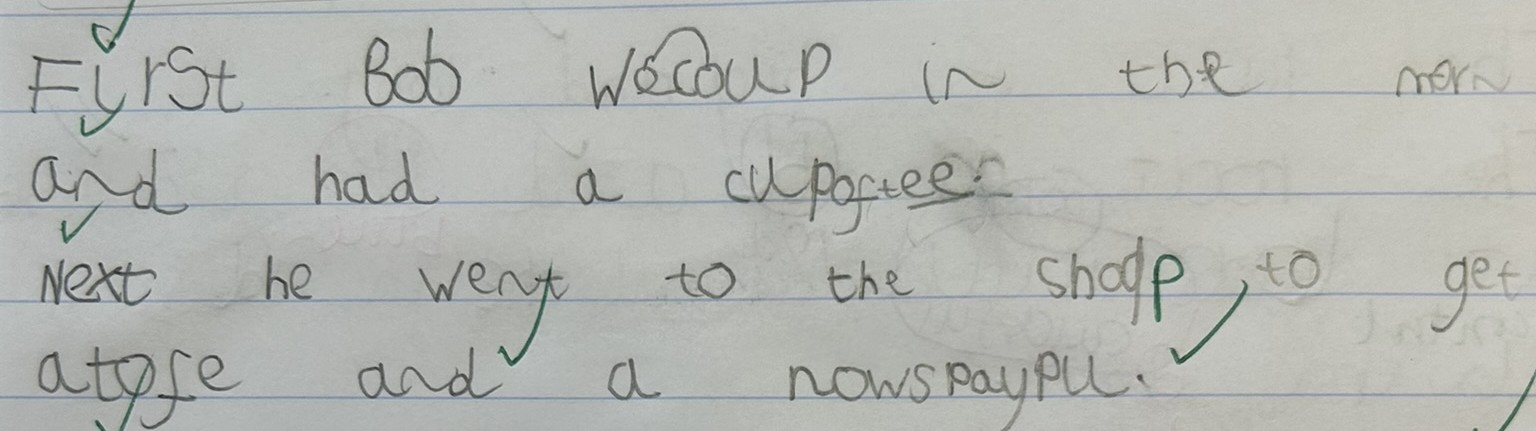 First Bob wecoup in the morn
and had a cupoftee.
Next he went to the shop to get
and a nowspaypu.